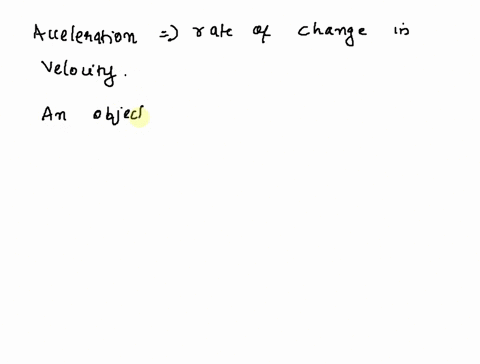 Acceleration => rate of change in
Velocity.
An objec